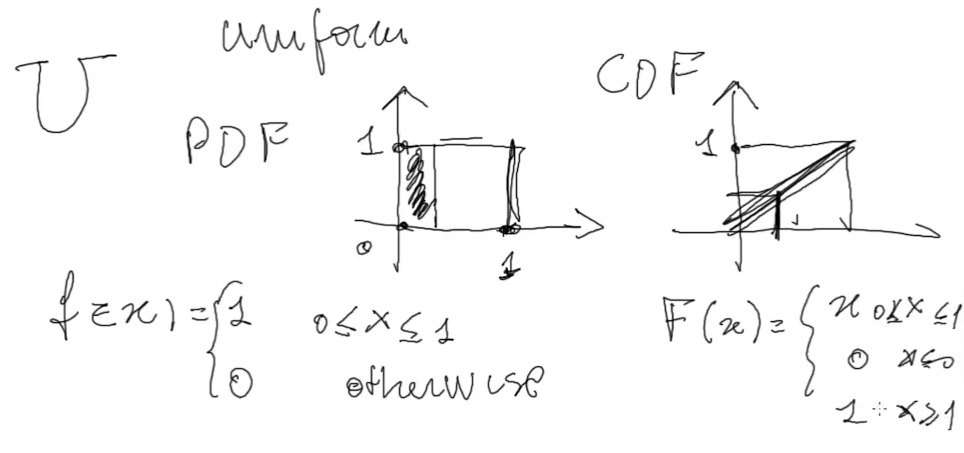 uniform
U
PDF
1
0
1
CDF
1
f(x) = { 1 0 ≤ x ≤ 1
0 otherwise
F(x) = { x 0 ≤ x ≤ 1
0 x ≤ 0
1 x ≥ 1